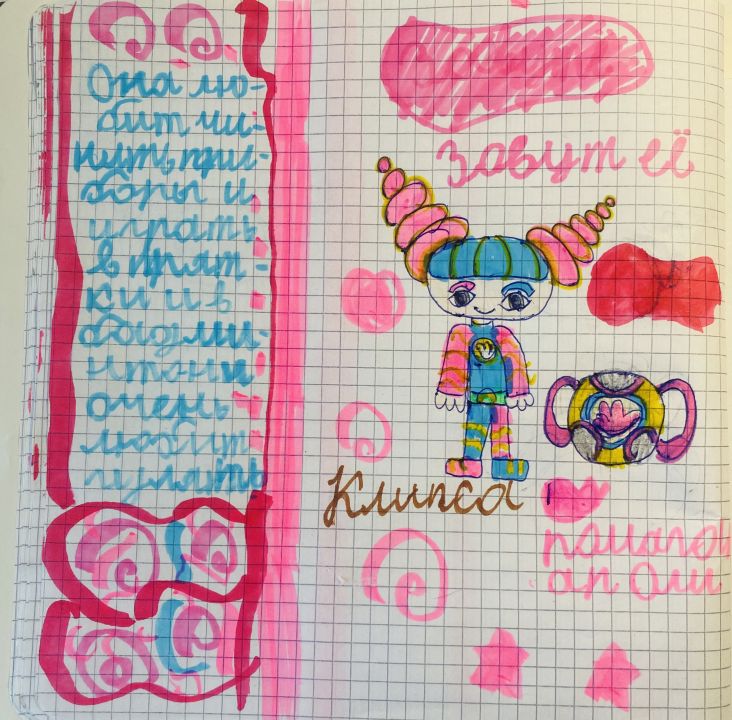 Она лю-
бит чи-
нить при-
боры и
играть
в прят-
ки и в
бадми-
нтон и
очень
любит
гулять
Завут её
Клипса